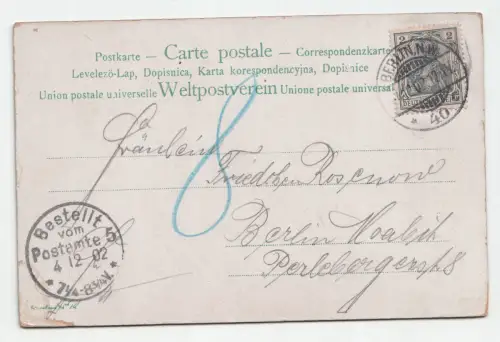 Postkarte – Carte postale – Correspondenzkarte
Levelező-Lap, Dopisnica, Karta korespondencyjna, Dopisnice
Union postale universelle Weltpostverein Unione postale universale
2 2
BERLIN N.W.
* 40
8
Fräulein
Friedchen Rosenow
Berlin Moabit
Perlebergerstr 8
Bestellt
vom
Postamte 5
4 12 02
* 7¼-8¾V. *